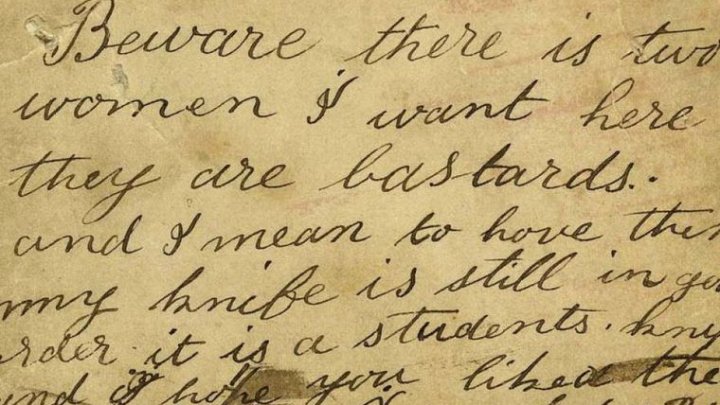 Beware there is two
women I want here
they are bastards.
and I mean to have them
my knife is still in go
rder it is a students. kny
and I hope you liked the